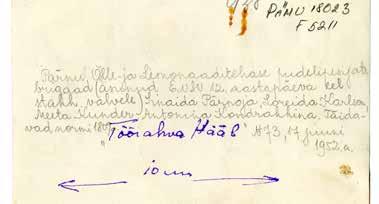 PÄMU 18023
F 5211
Pärnu Õlle-ja Limonaaditehase pudelipesijate
briggad (asunud E.N.S.V. 12. aastapäeva
stahh. valvele) Zinaida Pärnoja, Loreida Karlson,
Meeta Kunder Antonina Kondrahhina. Täida-
vad normi 180%
"Töörahva Hääl" N 73, 17. juuni
1952. a.
10 cm